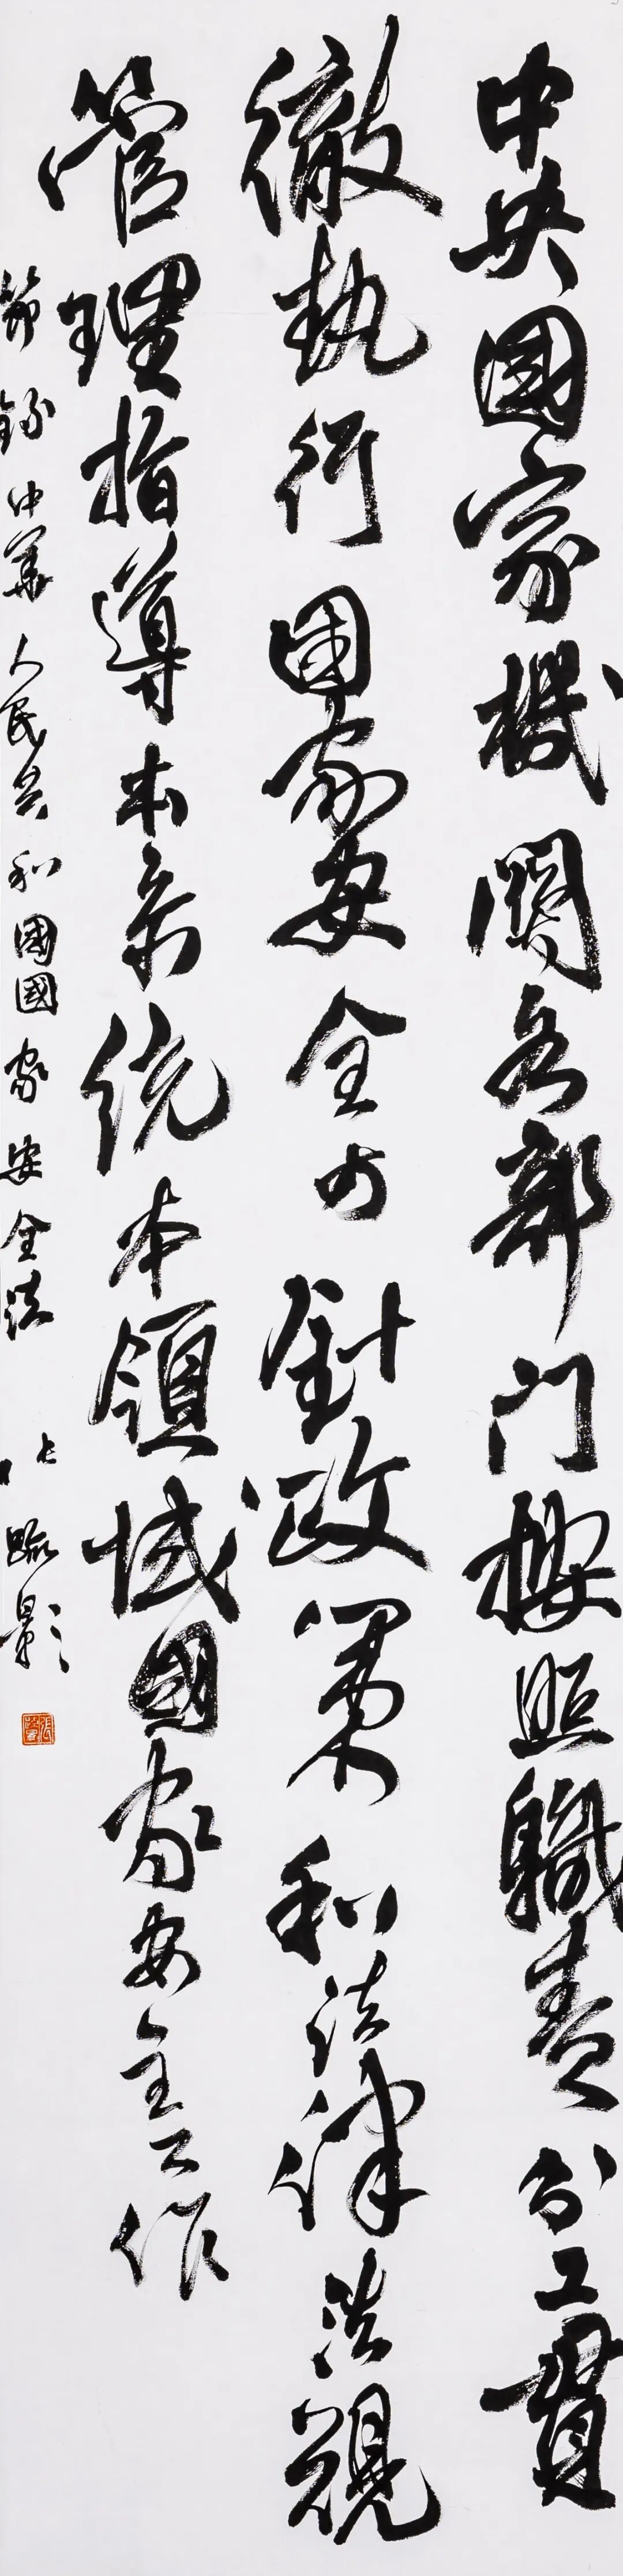 中央國家機關各部门按照職責分工貫
徹執行国家安全方針政策和法律法規
管理指導本系统本領域國家安全工作
節錄中華人民共和國國家安全法
影